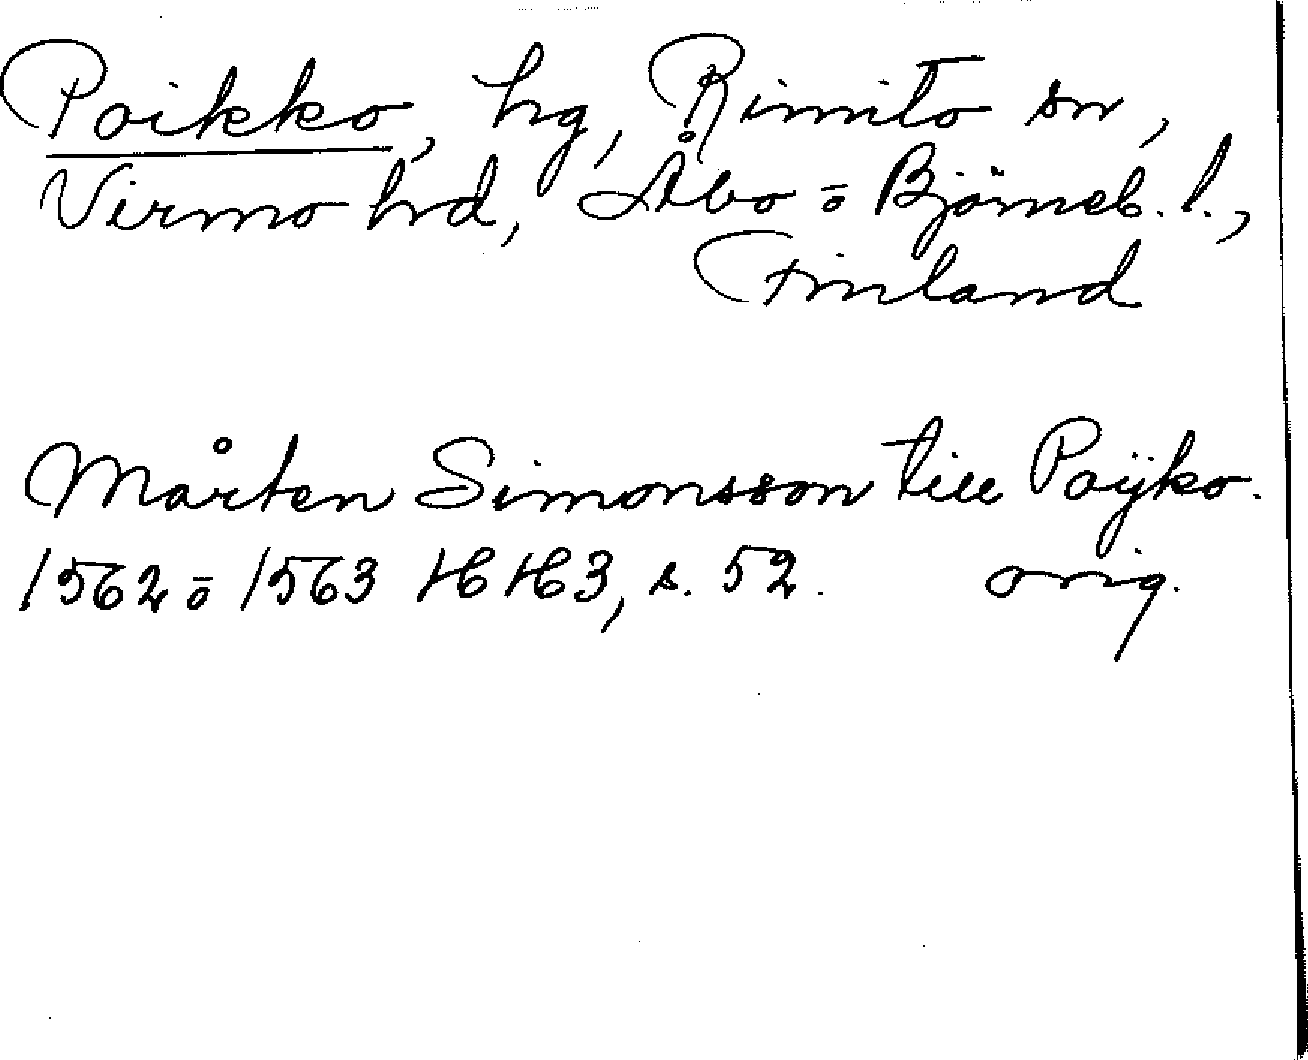 Poikko, hg, Rimito sn,
Virmo hrd, Åbo o Björneb. l.,
Finland
Mårten Simonsson till Poÿko.
1562 o 1563 HH3, s. 52. orig.